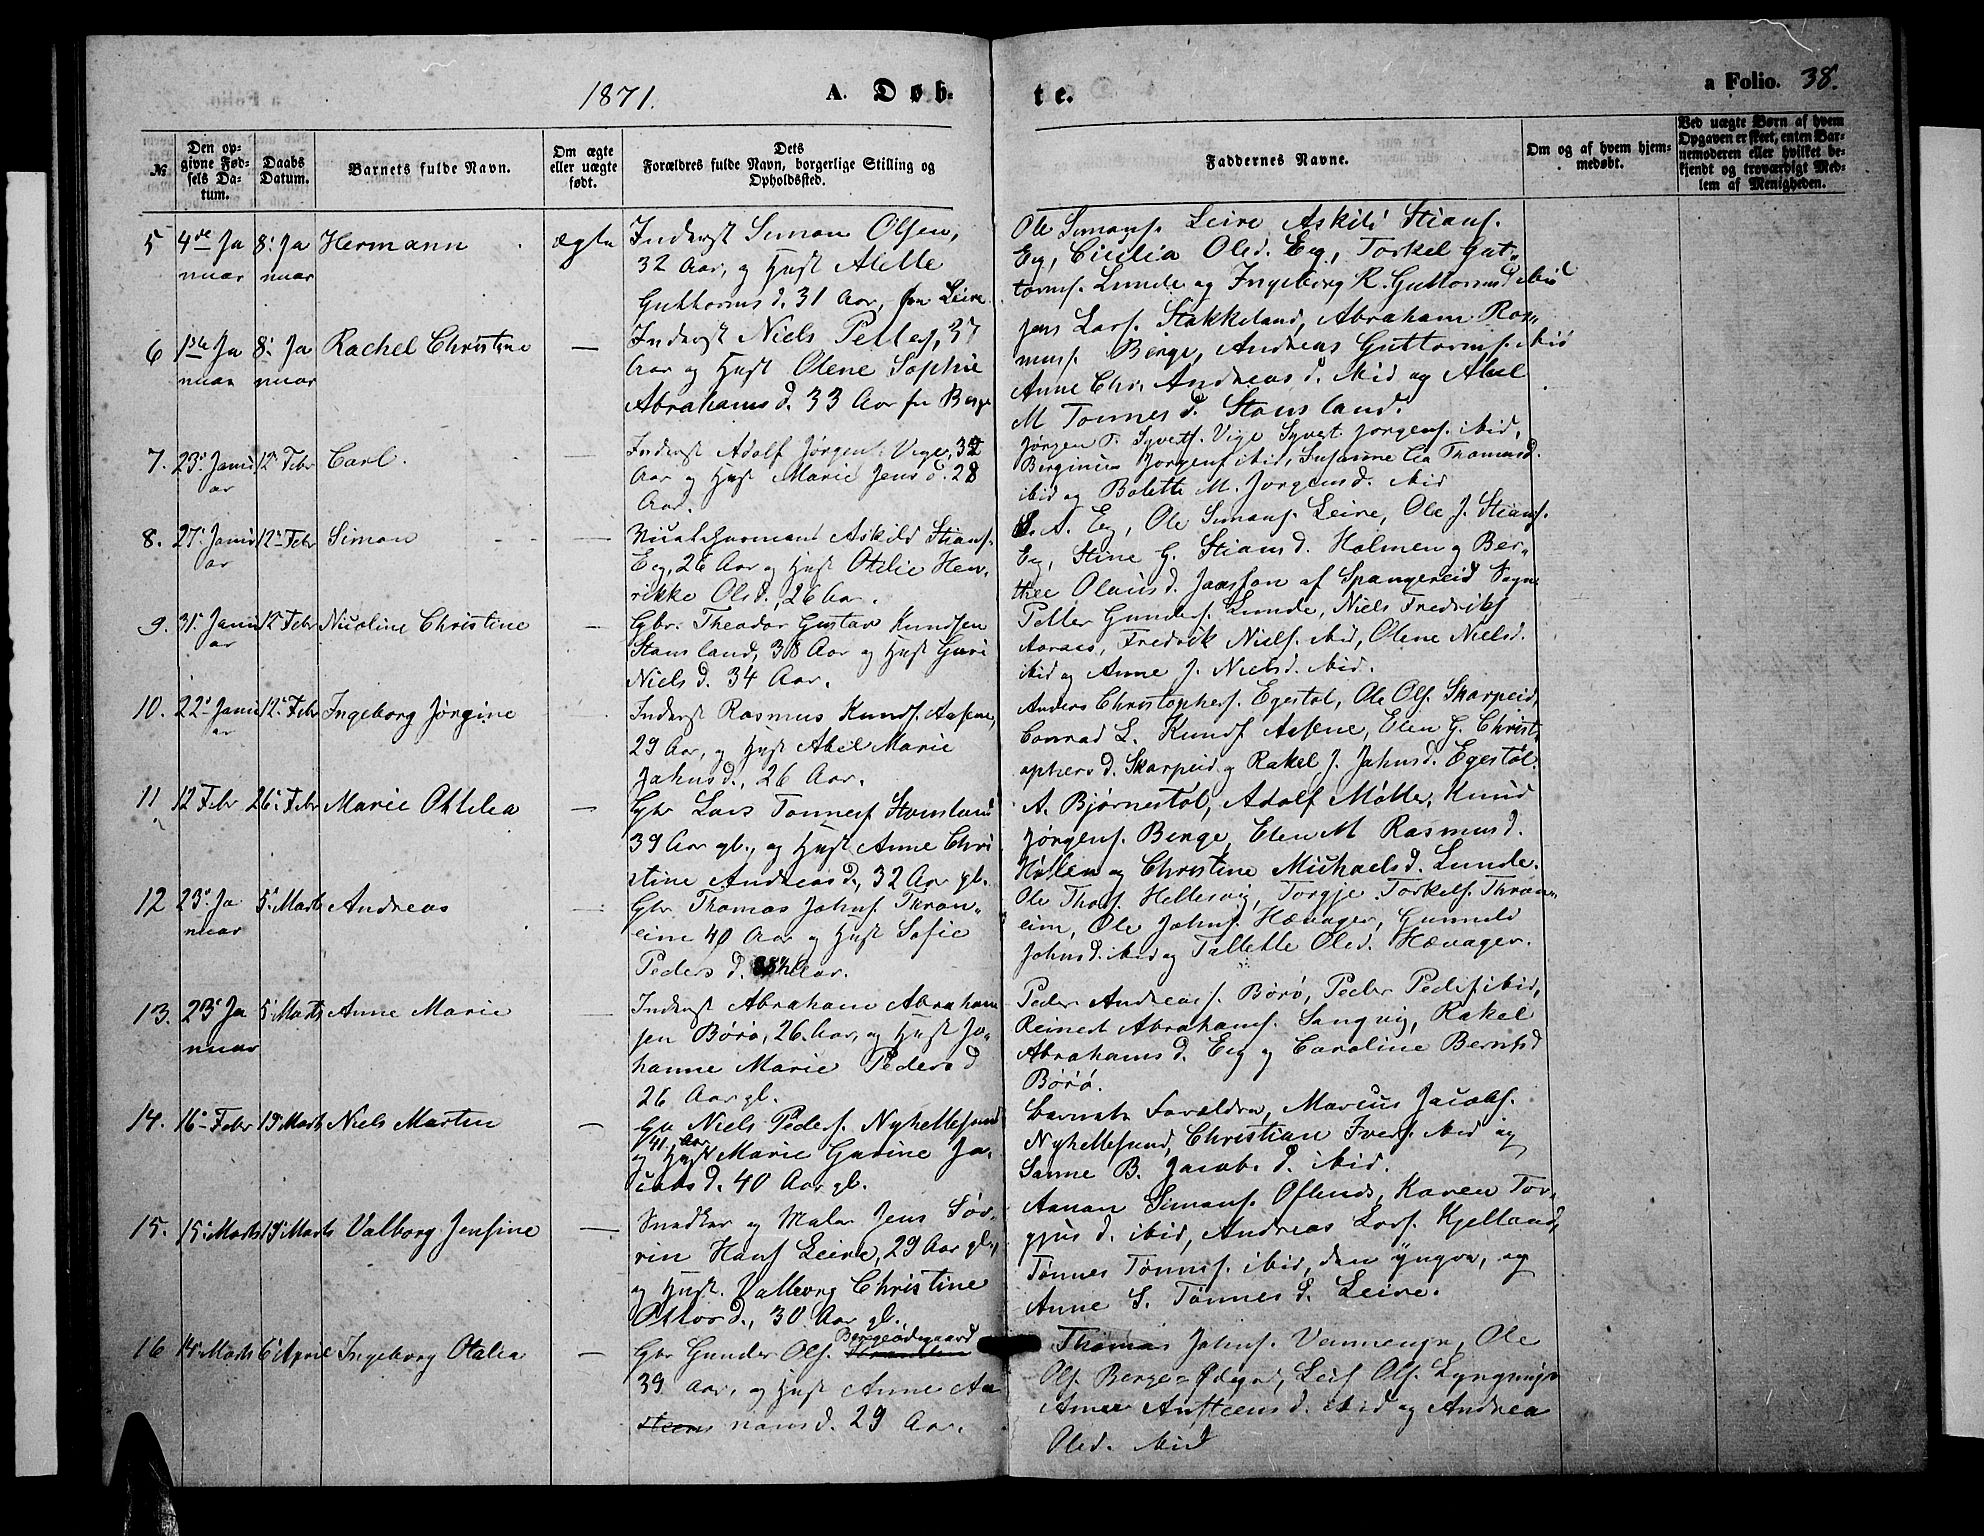 1871.
A. Døb-
te.
a Folio. 38.
№
Den op-
givne Fød-
sels Da-
tum.
Daabs
Datum.
Barnets fulde Navn.
Om ægte
eller uægte
født.
Dets
Forældres fulde Navn, borgerlige Stilling og
Opholdssted.
Faddernes Navne.
Om og af hvem hjem-
medøbt.
Ved uægte Børn af hvem
Opgaven er skeet, enten Bar-
nemoderen eller hvilket be-
kjendt og troværdigt Med-
lem af Menigheden.
5 4de Ja
nuar
8: Ja
nuar
Hermann
ægte
Inderst Simon Olsen,
32 Aar, og Hust Alette
Guttorms d. 31 Aar, fra Leire
Ole Simons. Leire Askild Stians.
Eg, Cicilia Olsd. Eg, Torkel Gut-
torms. Lunde og Ingeborg K. Guttormsd ibid
6 1ste Ja
nuar
8: Ja
nuar
Rachel Christine
—
Inderst Niels Petters, 37
Aar og Hust Olene Sophie
Abrahams d. 33 Aar fra Berge
Jens Lars. Stakkeland, Abraham Ras-
mus. Berge, Andreas Guttorms. ibid
Anne Chr. Andreas d. ibid og Abel
M Tønnes d. Stausland.
7. 23: Janu
ar
12: Febr
Carl.
—
Inderst Adolf Jørgens. Vige, 32
Aar og Hust Marie Jens d. 28
Aar.
Jørgen T. Syverts. Vige Syvert Jørgens. ibid,
Berginius Jørgens ibid, Susanne Lea Thomasd.
ibid og Bolette M. Jørgensd. ibid
8. 27: Janu
ar
12: Febr
Simon
—
Askild Stians.
Eg, 26 Aar og Hust Otelie Hen-
rikke Olsd., 26 Aar.
S. A. Eg, Ole Simons. Leire, Ole J. Stians.
Eg, Stine G. Stians d. Holmen og Ber-
the Olaus d. Jaasson af Spangereid Sogn
9. 31: Janu
ar
12: Febr
Nicoline Christine
—
Gbr. Theodor Gustav Knudsen
Stausland, 38 Aar og Hust Guri
Niels d. 34 Aar.
Petter Gunders. Lunde, Niels Fredriks
Aaraas, Fredrik Niels. ibid, Olene Nielsd.
ibid og Anne J. Nielsd. ibid.
10. 22: Janu
ar
12: Febr
Ingeborg Jørgine
—
Inderst Rasmus Knuds. Aasene,
29 Aar, og Hust Abel Marie
Jahns d., 26 Aar.
Anders Christophers. Egestøl, Ole Ols. Skarpeid,
Conrad L. Knuds Aasene, Elen G. Christ-
ophers d. Skarpeid og Rakel J. Jahnsd. Egestøl.
11 12 Febr 26: Febr
Marie Ottilea
—
Gbr Lars Tønnes Stausland
39 Aar gl., og Hust Anne Chri
stine Andreas d, 32 Aar gl.
A. Bjørnestøl, Adolf Møller, Knud
Jørgens. Berge, Elen M Rasmus d.
Høllen og Christine Michaels d. Lunde.
12 23: Ja
nuar
5: Marts
Andreas
—
Gbr. Thomas Johns. Thron-
eim 40 Aar og Hust Sofie
Peders d. Aar.
Ole Thos. Hellesvig, Torgje Torkels. Thron-
eim, Ole Johns. Hævager, Gunnild
Johns d. ibid og Tallette Olsd. Hævager.
13. 23 Ja
nuar
5: Marts
Anne Marie
—
Inderst Abraham Abraham
sen Børø, 26 Aar, og Hust Jo-
hanne Marie Peders d
26 Aar gl.
Peder Andreas. Børø, Peder Peders ibid,
Reinert Abrahams. Sangvig, Rakel
Abrahams d. Eeg og Caroline Berntsd
Børø.
14. 16- Febr 19 Marts
Niels Martin
—
Gbr Niels Peders. Nyhellesund
41 Aar
og Hust Marie Gurine Ja-
cobs d. 40 Aar gl.
Barnets Forældre, Marcus Jacobs.
Nyhellesund, Christian Ivers. ibid og
Sanne B. Jacobs d. ibid.
15. 15: Marts 19: Marts
Valborg Jensine
—
Snedker og Maler Jens Sør-
rin Hans Leire, 29 Aar gl.,
og Hust. Valborg Christine
Ottos d., 30 Aar gl.
Aanan Simons. Oftenes, Karen Tor-
gjus d. ibid, Andreas Lars. Kjelland,
Tønnes Tønnes. ibid, den yngre, og
Anne S. Tønnes d. Leire.
16 14: Marts 6: April
Ingeborg Otalia
—
Bergeødegaard
Gbr Gunder Ols.
39 Aar, og Hust Anne Aa
nons d. 29 Aar.
Thomas Johns. Vennenga, Ole
Ols. Berge-Ødegrd, Leif Ols. Lyngmyr
Amer Austeens d. ibid og Andrea
Olsd. ibid